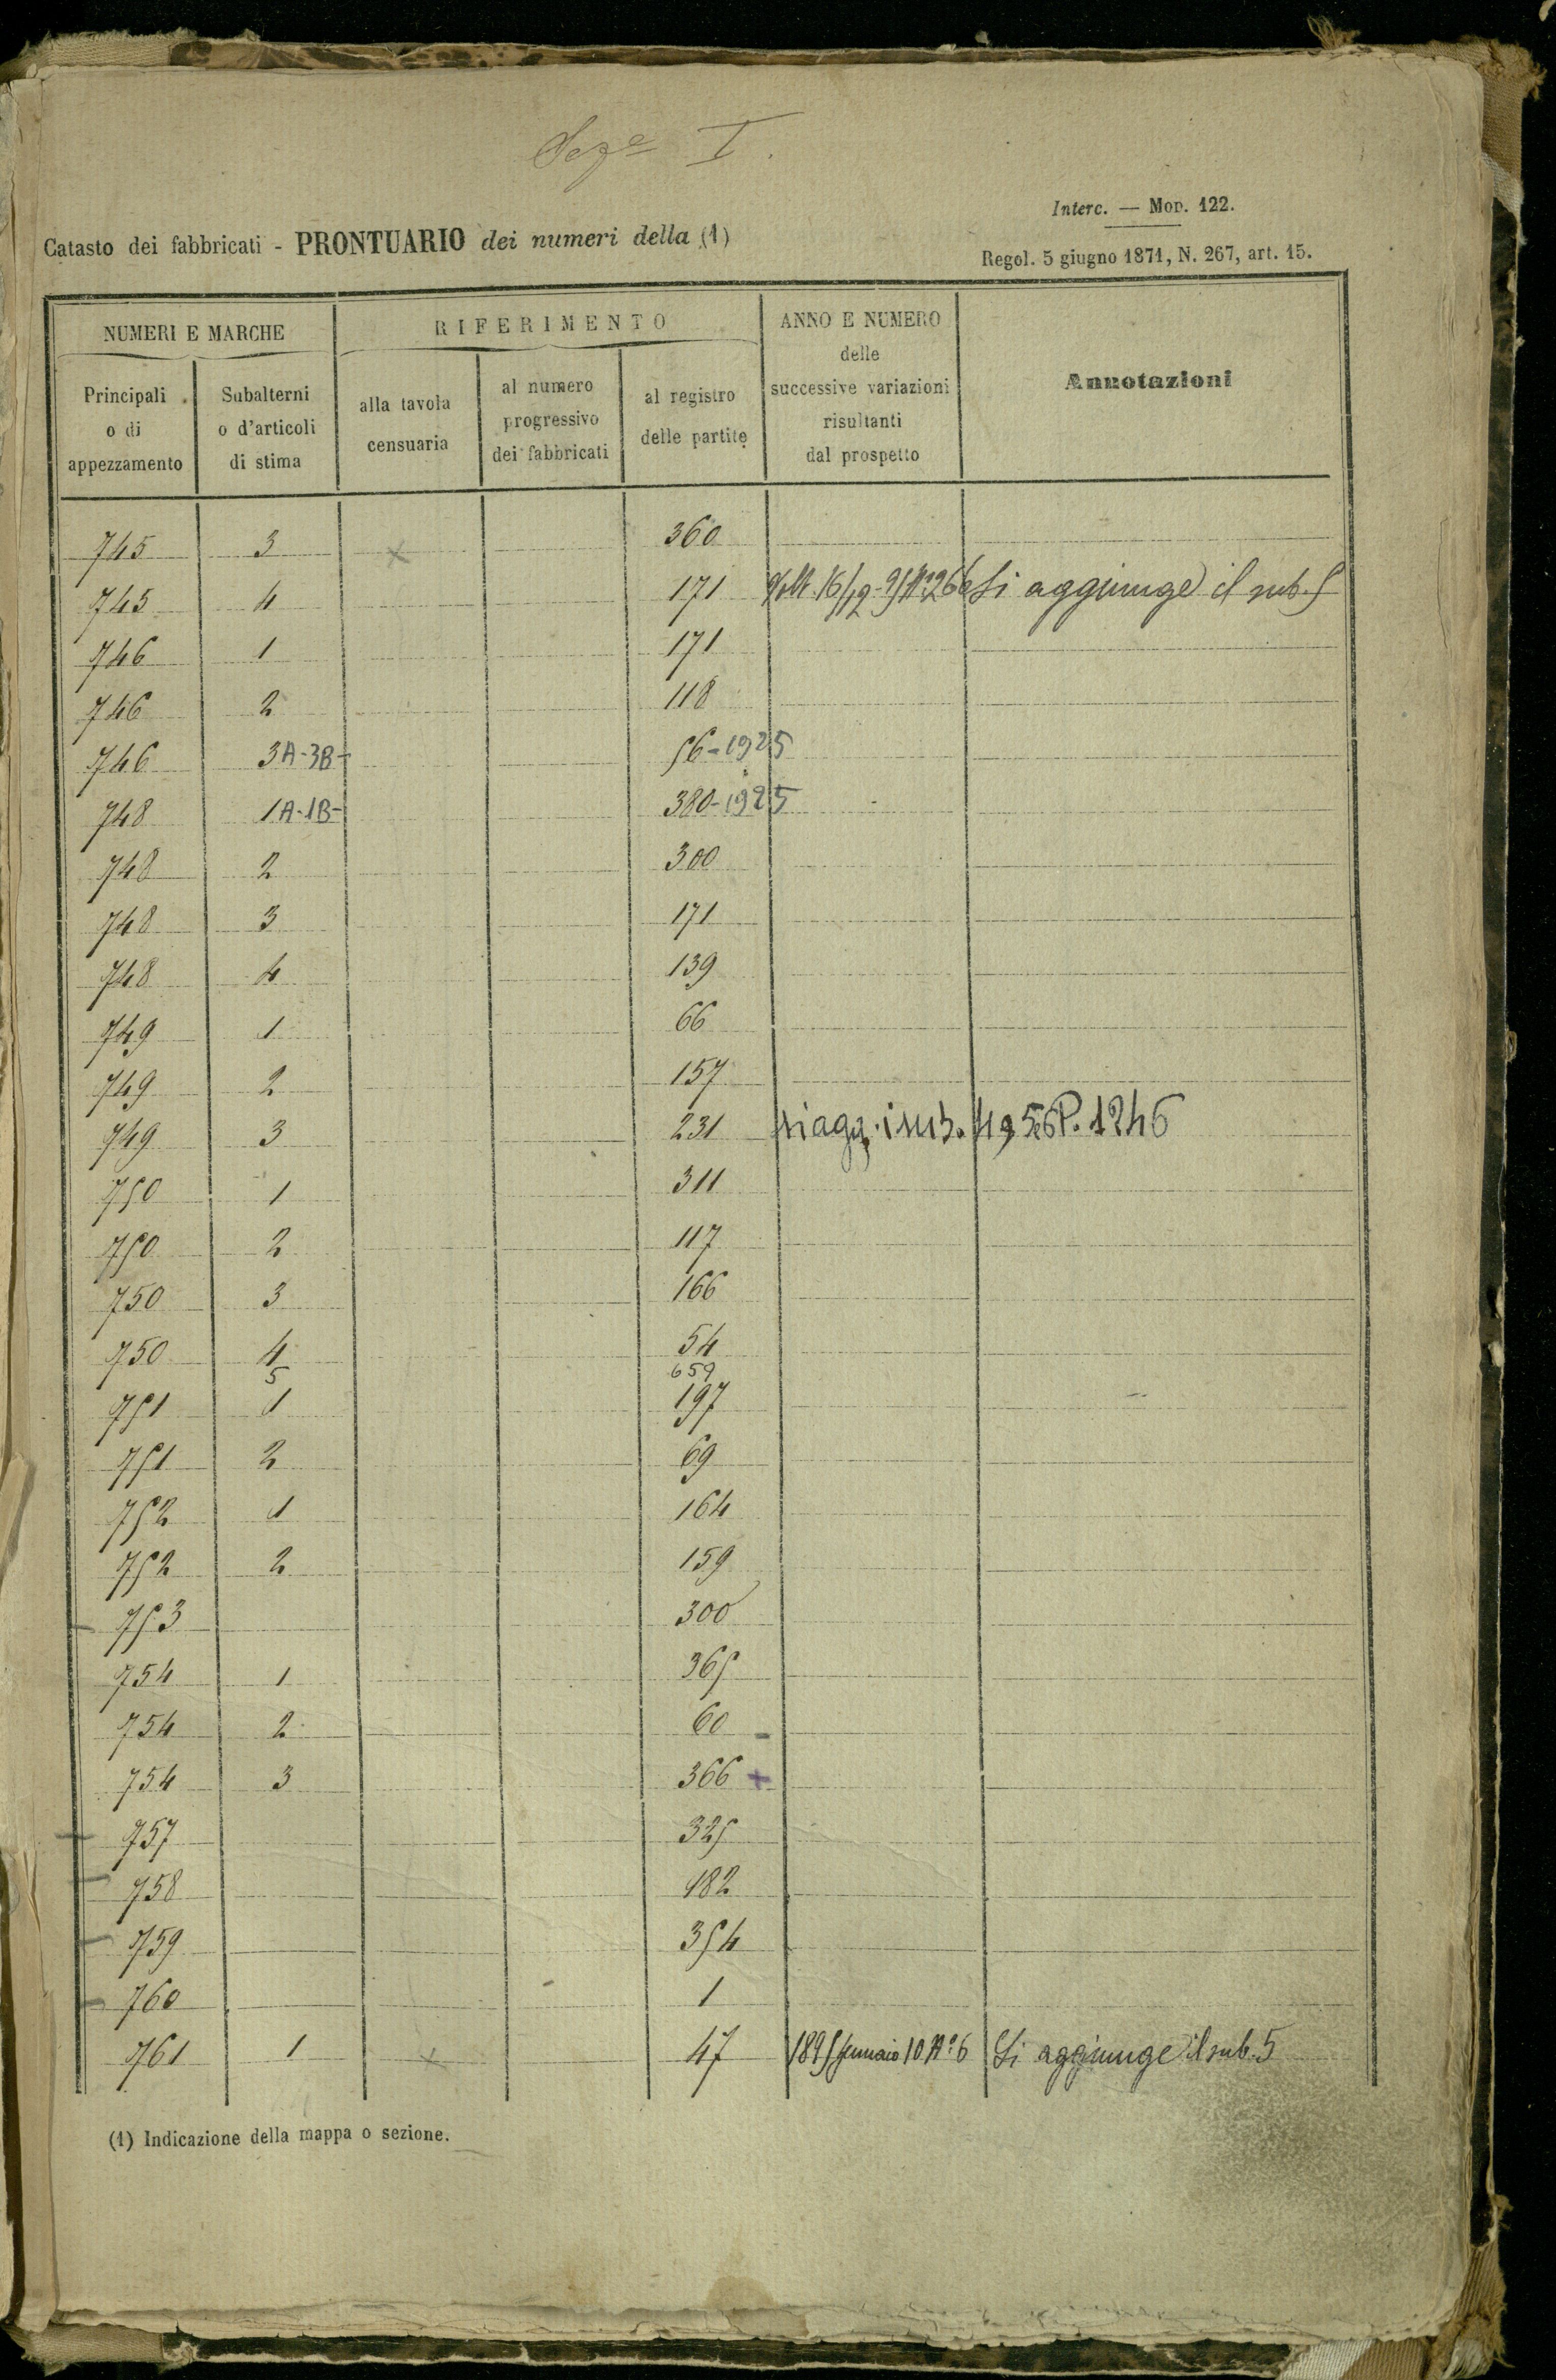 Seze I.
Interc. — Mod. 122.
Catasto dei fabbricati - PRONTUARIO dei numeri della (1)
Regol. 5 giugno 1871, N. 267, art. 15.
NUMERI E MARCHE
RIFERIMENTO
ANNO E NUMERO
delle
successive variazioni
risultanti
dal prospetto
Annotazioni
Principali
o di
appezzamento
Subalterni
o d'articoli
di stima
alla tavola
censuaria
al numero
progressivo
dei fabbricati
al registro
delle partite
745 3 x 360
745 4 171 16/12-91 N° 266 Si aggiunge il sub. 5
746 1 171
746 2 118
746 3A-3B- 56-1925
748 1A-1B- 380-1925
748 2 300
748 3 171
748 4 139
749 1 66
749 2 157
749 3 231 si agg. i sub. 4, 5 e 6 P. 1246
750 1 311
750 2 117
750 3 166
750 4 54
5 659
751 1 197
751 2 69
752 1 164
752 2 159
753 300
754 1 365
754 2 60
754 3 366 +
757 325
758 182
759 354
760 1
761 1 x 47 1895 Gennaio 10 N° 6 Si aggiunge il sub. 5
(1) Indicazione della mappa o sezione.